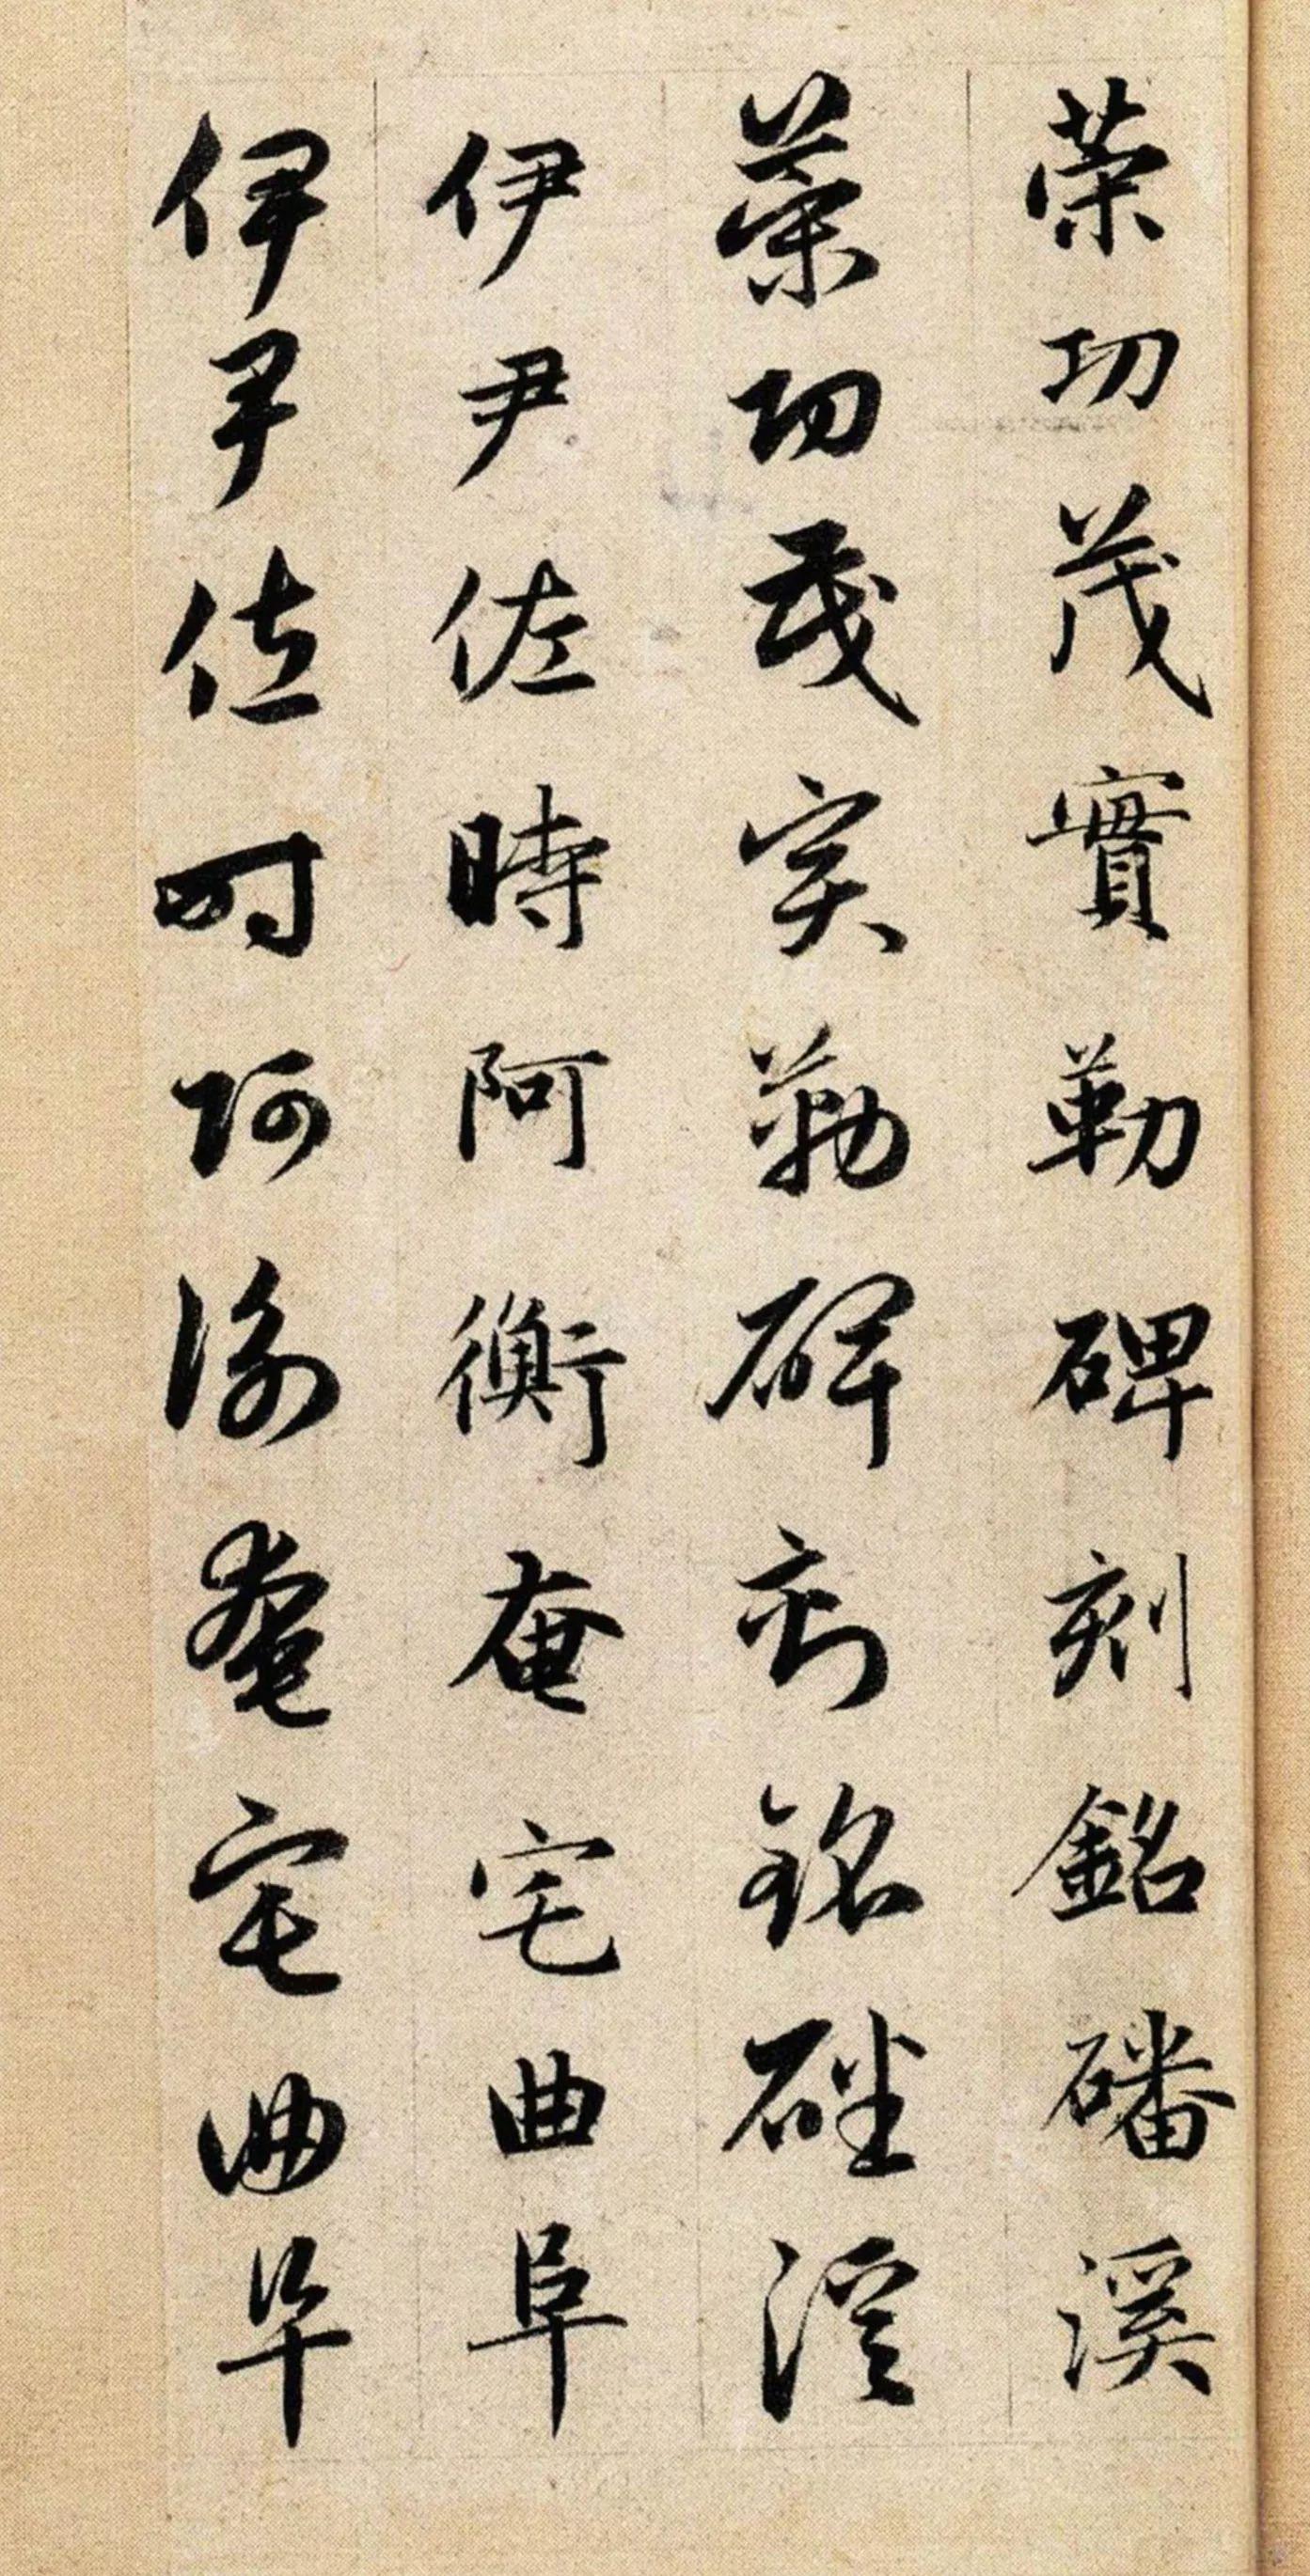 榮功茂實勒碑刻銘磻溪
榮功茂實勒碑刻銘磻溪
伊尹佐時阿衡奄宅曲阜
伊尹佐時阿衡奄宅曲阜